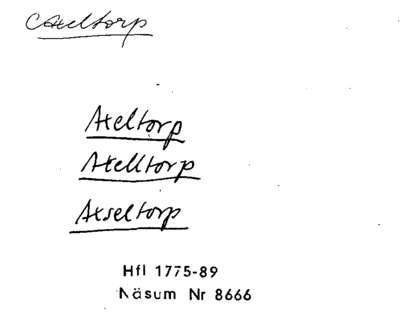 Axeltorp
Axeltorp
Axelltorp
Axseltorp
Hfl 1775-89
Näsum Nr 8666